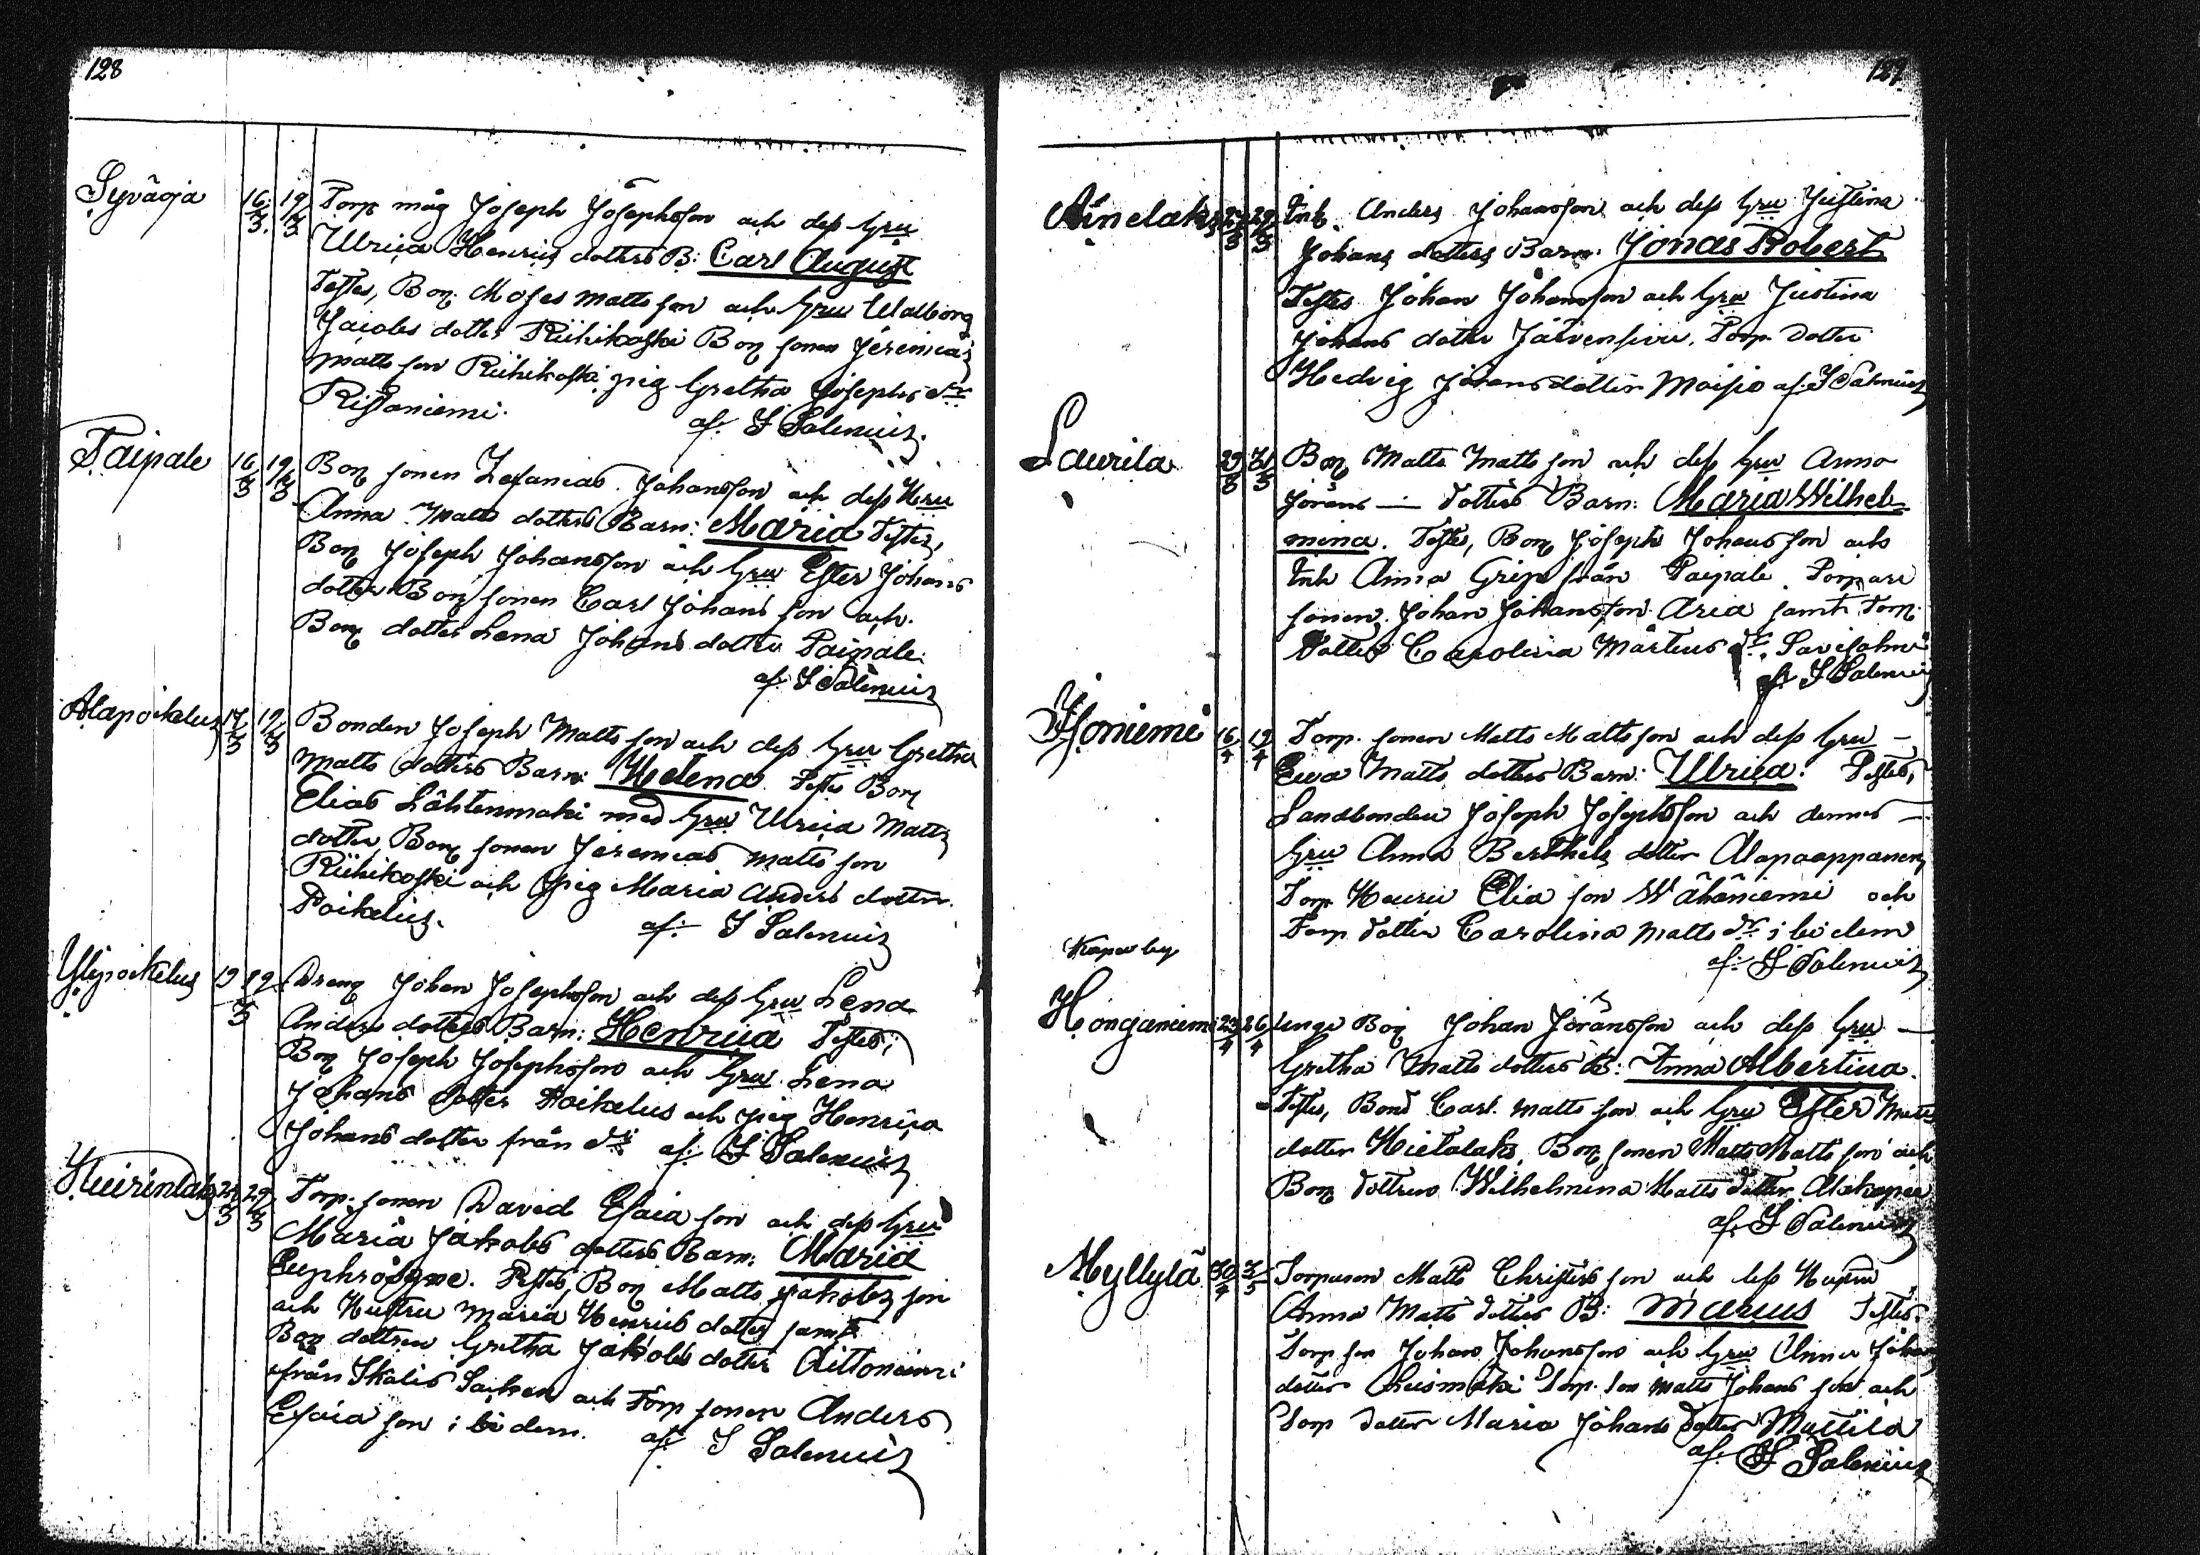 128
Syväoja 16/3. 19/3 Torp. måg Joseph Josephsson och dess hru
Ulrica Henrics dotters B: Carl August
Testes, Bon. Moses Matts son och hru Walborg
Jacobs dotter Riihikoski Bon sonen Jeremias
Matts son Riihikoski pig Gretha Josephs dr
Rissaniemi. af. I Salenius.
Taipale 16/3 19/3 Bon sonen Zefanias Johansson och dess Hru
Anna Matts dotters Barn: Maria Testes,
Bon Joseph Johansson och hru Ester Johans
dotter Bon sonen Carl Johans son och.
Bon dotter Lena Johans dotter Taipale.
af. I Salenius
Alapoikelus 17/3 19/3 Bonden Joseph Matts son och dess hru Gretha
Matts dotters Barn: Helena. Testes Bon
Elias Lähtenmaki med hru Ulrica Matts
dotter, Bon sonen Jeremias Matts son
Riihikoski och pig Maria Anders dotter
Poikelus. af. I Salenius
Ylipoikelus 19 19/3 Dreng Johan Josephsson och dess hru Lena
Anders dotters Barn: Henrica Testes;
Bon Joseph Josephsson och hru Lena
Johans dotter Poikelus och pig Henrica
Johans dotter från af. I Salenius
29/3 Torp. sonen David Esaia son och dess hru
Maria Jakobs dotters Barn: Maria
Euphrosyne. Testes, Bon Matts Jakobs son
och Hustru Maria Henrics dotter samt
Bon dottren Gretha Jakobs dotter
från och Torp sonen Anders
Esaia son i bidem. af. I Salenius
129.
29/3 Inh. Anders Johansson och dess hru Justina
Johans dotters Barn: Jonas Robert
Testes Johan Johansson och hru Justina
Johans dotter Järvensivu. Torp. dotter
Hedvig Johans dotter Moisio af. I Salenius
Laurila 31/3 Bon Matts Matts son och dess hru Anna
Jörans — dotters Barn: Maria Wilhel-
mina. Testes, Bon Joseph Johans son och
Inh Anna Grip från Paipale Torpare
sonen Johan Johansson Aria samt Torp.
dotter Carolina Mårtens dr.
af I Salenius
Isoniemi 16/4 19/4 Torp. sonen Matts Matts son och dess hru —
Ewa Matts dotters Barn: Ulrica. Testes,
Landbonden Joseph Josephsson och dennes —
hru Anna Berthels dotter Alapaappanen,
Torp Henric Elia son Wähäniemi och
Torp dotter Carolina Matts dr i bidem
af. I Salenius
Kapee by
Honganiemi 23/4 26/4 unge Bon Johan Jöransson och dess hru —
Gretha Matts dotters B: Anna Albertina.
Testes, Bond Carl. Matts son och hru Ester Matts
dotter Hietalaks, Bon sonen Matts Matts son och
Bon dottren Wilhelmina Matts dotter Alakapee
af. I Salenius
Myllylä 30/4 3/5 Torparen Matts Christers son och dess Hustru
Anna Matts dotters B: Marcus Testes.
Torp son Johan Johansson och hru Anna Johans
dotter Torp. son Matts Johans son och
Torp dotter Maria Johans dotter Mattila
af. I Salenius